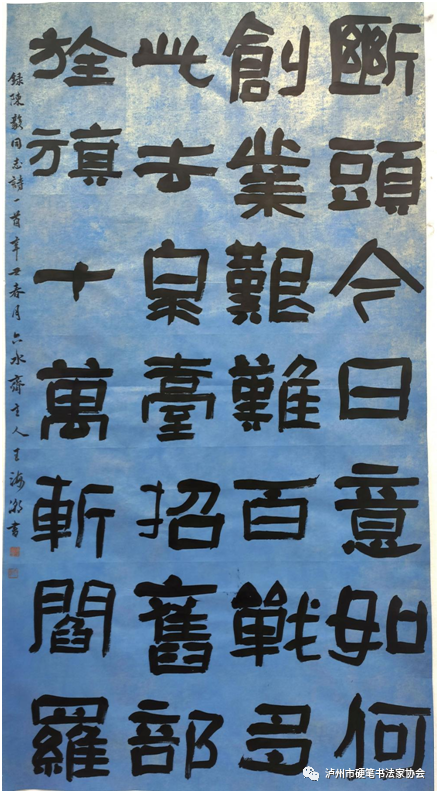 斷頭今日意如何
創業艱難百戰多
此去泉臺招舊部
旌旗十萬斬閻羅
録陳毅同志詩一首辛丑春月六水齋主人王海書
泸州市硬笔书法家协会